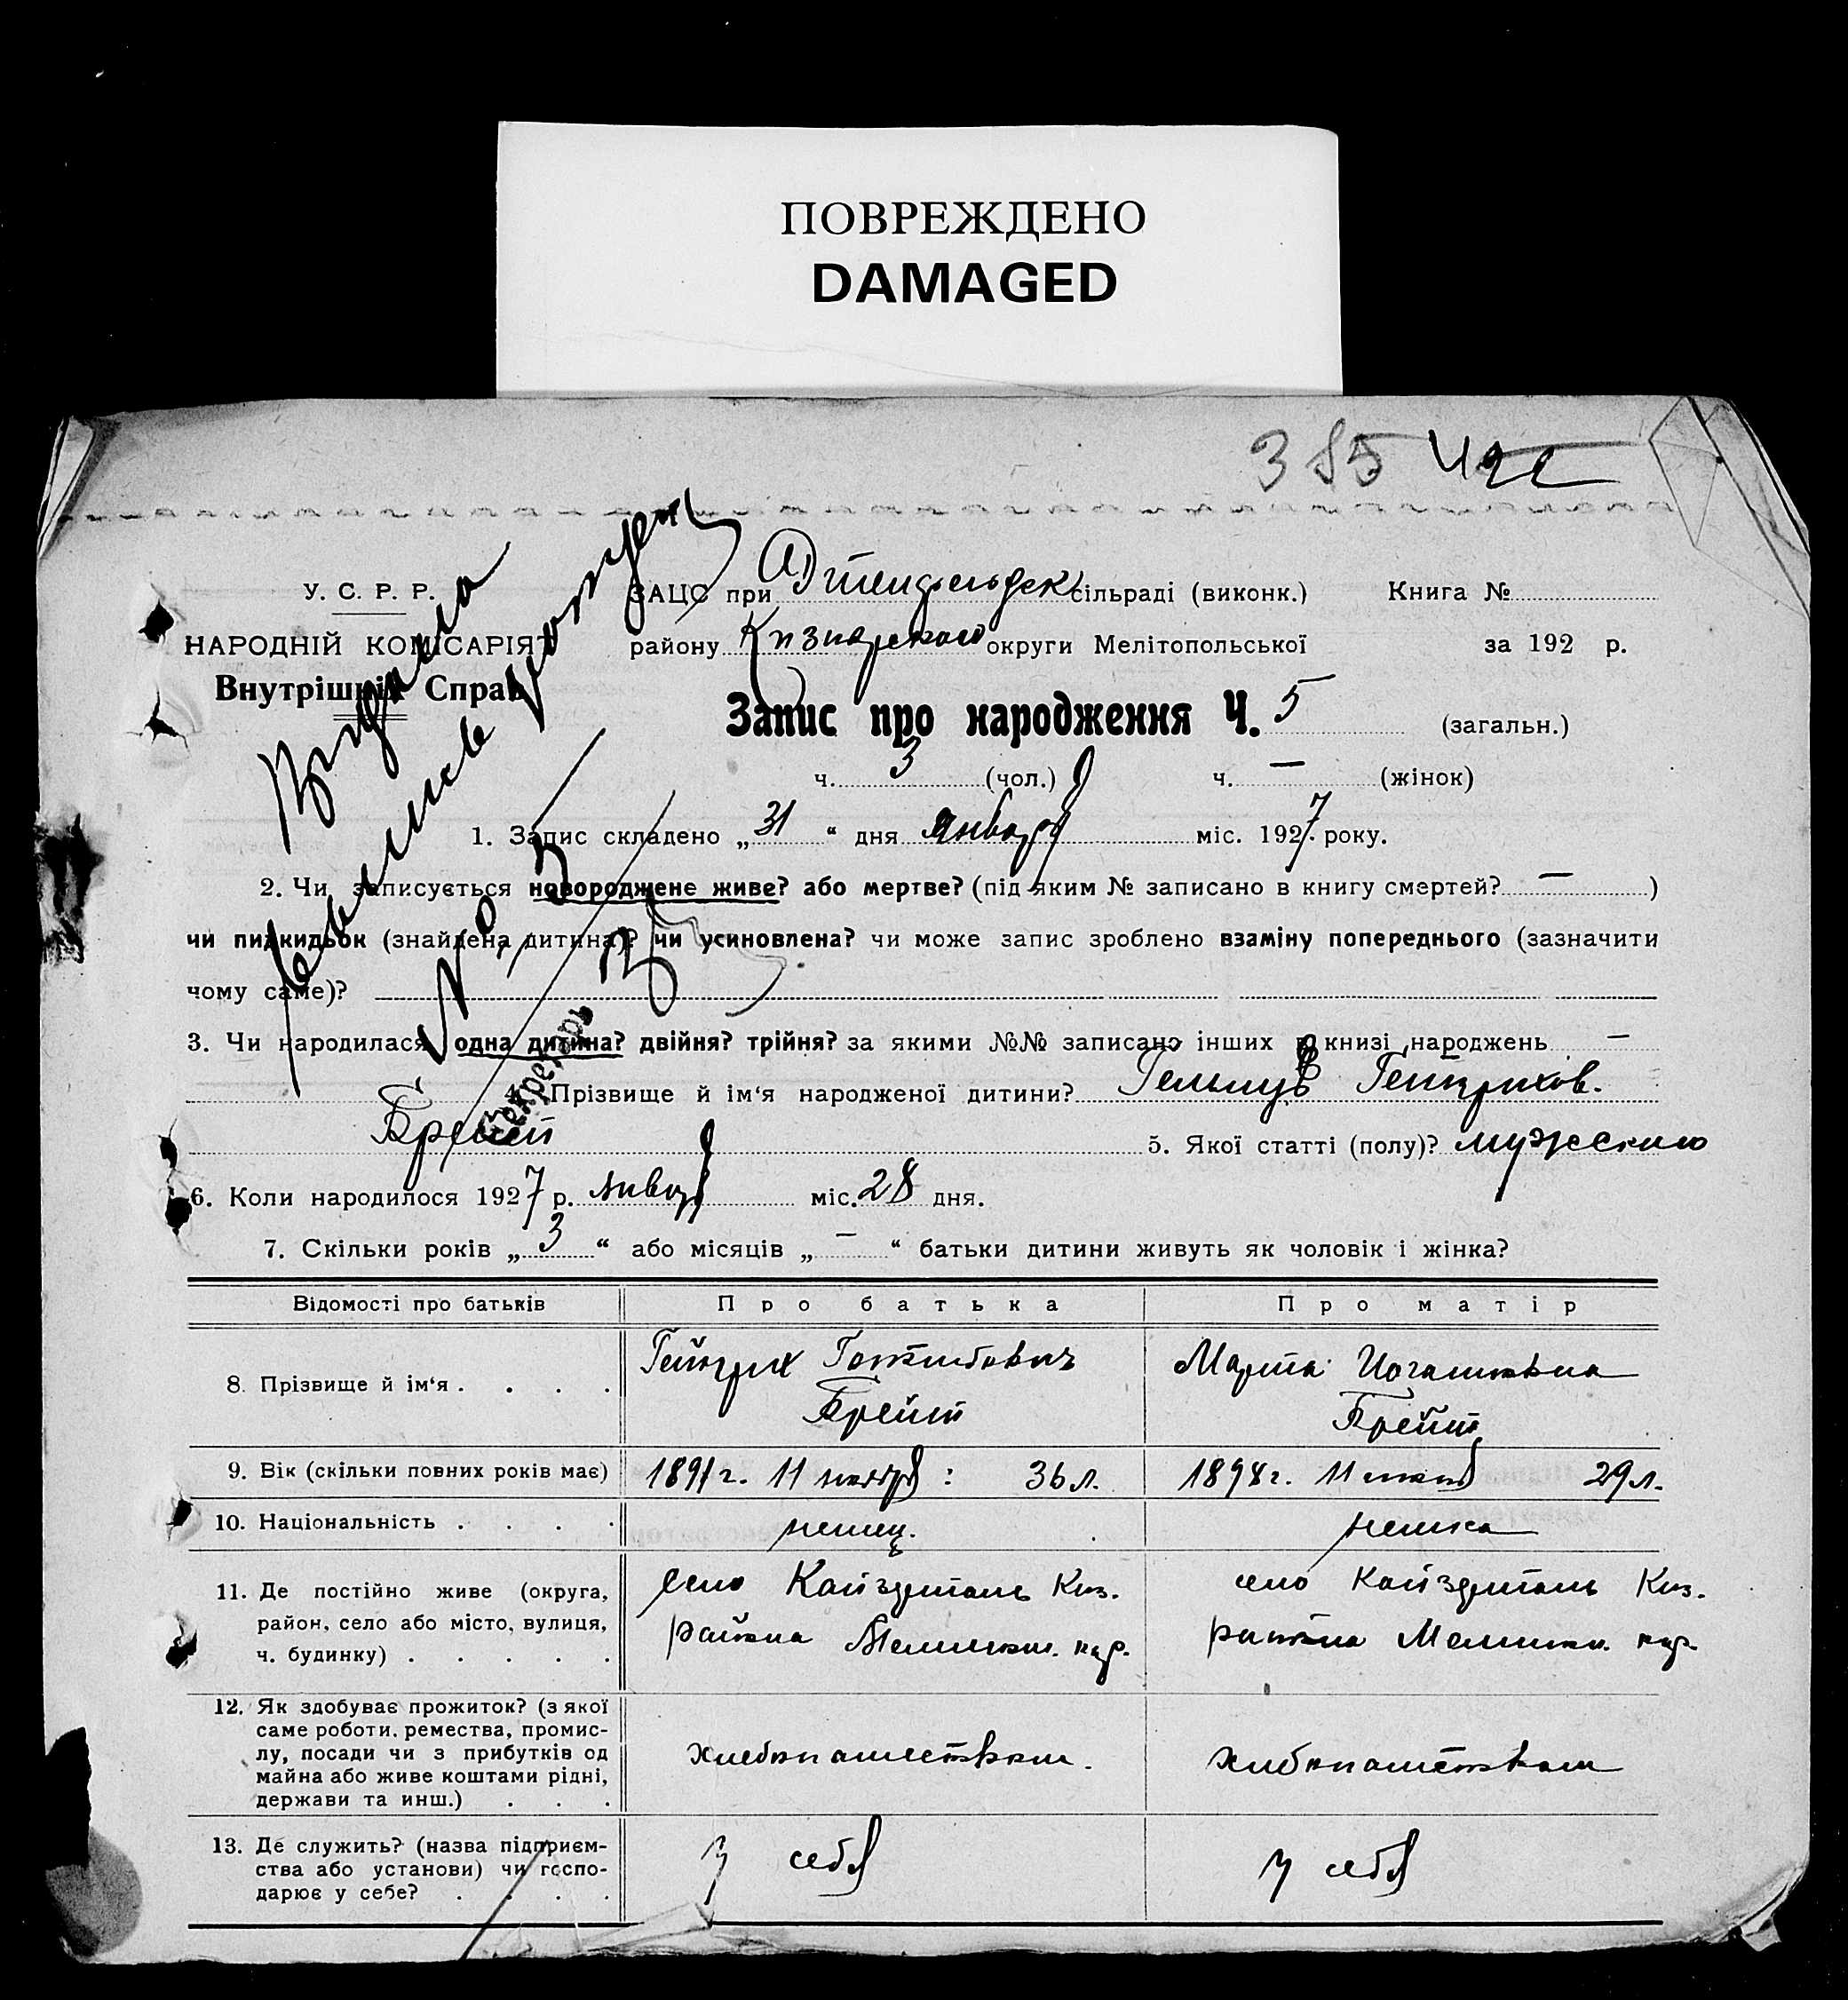 ПОВРЕЖДЕНО
DAMAGED
385
У. С. Р. Р.
НАРОДНІЙ КОМІСАРІЯТ
Внутрішніх Справ
ЗАЦС при сільраді (виконк.) Книга №
району округи Мелітопольської за 192 р.
Запис про народження Ч. 5 (загальн.)
ч. 3 (чол.) ч. — (жінок)
1. Запис складено „ 31 “ дня января міс. 1927. року.
2. Чи записується новороджене живе? або мертве? (під яким № записано в книгу смертей? — )
чи підкидьок (знайдена дитина)? чи усиновлена? чи може запис зроблено взаміну попереднього (зазначити
чому саме)?
3. Чи народилася одна дитина? двійня? трійня? за якими №№ записано інших в книзі народжень —
4. Прізвище й ім‘я народженої дитини? Гельмут Генрихов.
Брейт 5. Якої статті (полу)? мужеского
6. Коли народилося 1927 р. января міс. 28 дня.
7. Скільки років „ 3 “ або місяців „ — “ батьки дитини живуть як чоловік і жінка?
Выдана
№ 5
Секретарь
Відомості про батьків Про батька Про матір
8. Прізвище й ім‘я . . . . Гейнрих Готлибович Брейт Марта Иоганновна Брейт
9. Вік (скільки повних років має) 1891 г. 11 ноября : 36 л. 1898 г. 11 29 л.
10. Національність . . . . немец. немка
11. Де постійно живе (округа, район, село або місто, вулиця, ч. будинку) . . . . . село Кайзерталь Киз. района окр. село Кайзерталь Киз. района окр.
12. Як здобуває прожиток? (з якої саме роботи. ремества, промислу, посади чи з прибутків од майна або живе коштами рідні, держави та инш.) . . . хлебопашеством. хлебопашеством
13. Де служить? (назва підприємства або установи) чи господарює у себе? . . . . у себя у себя